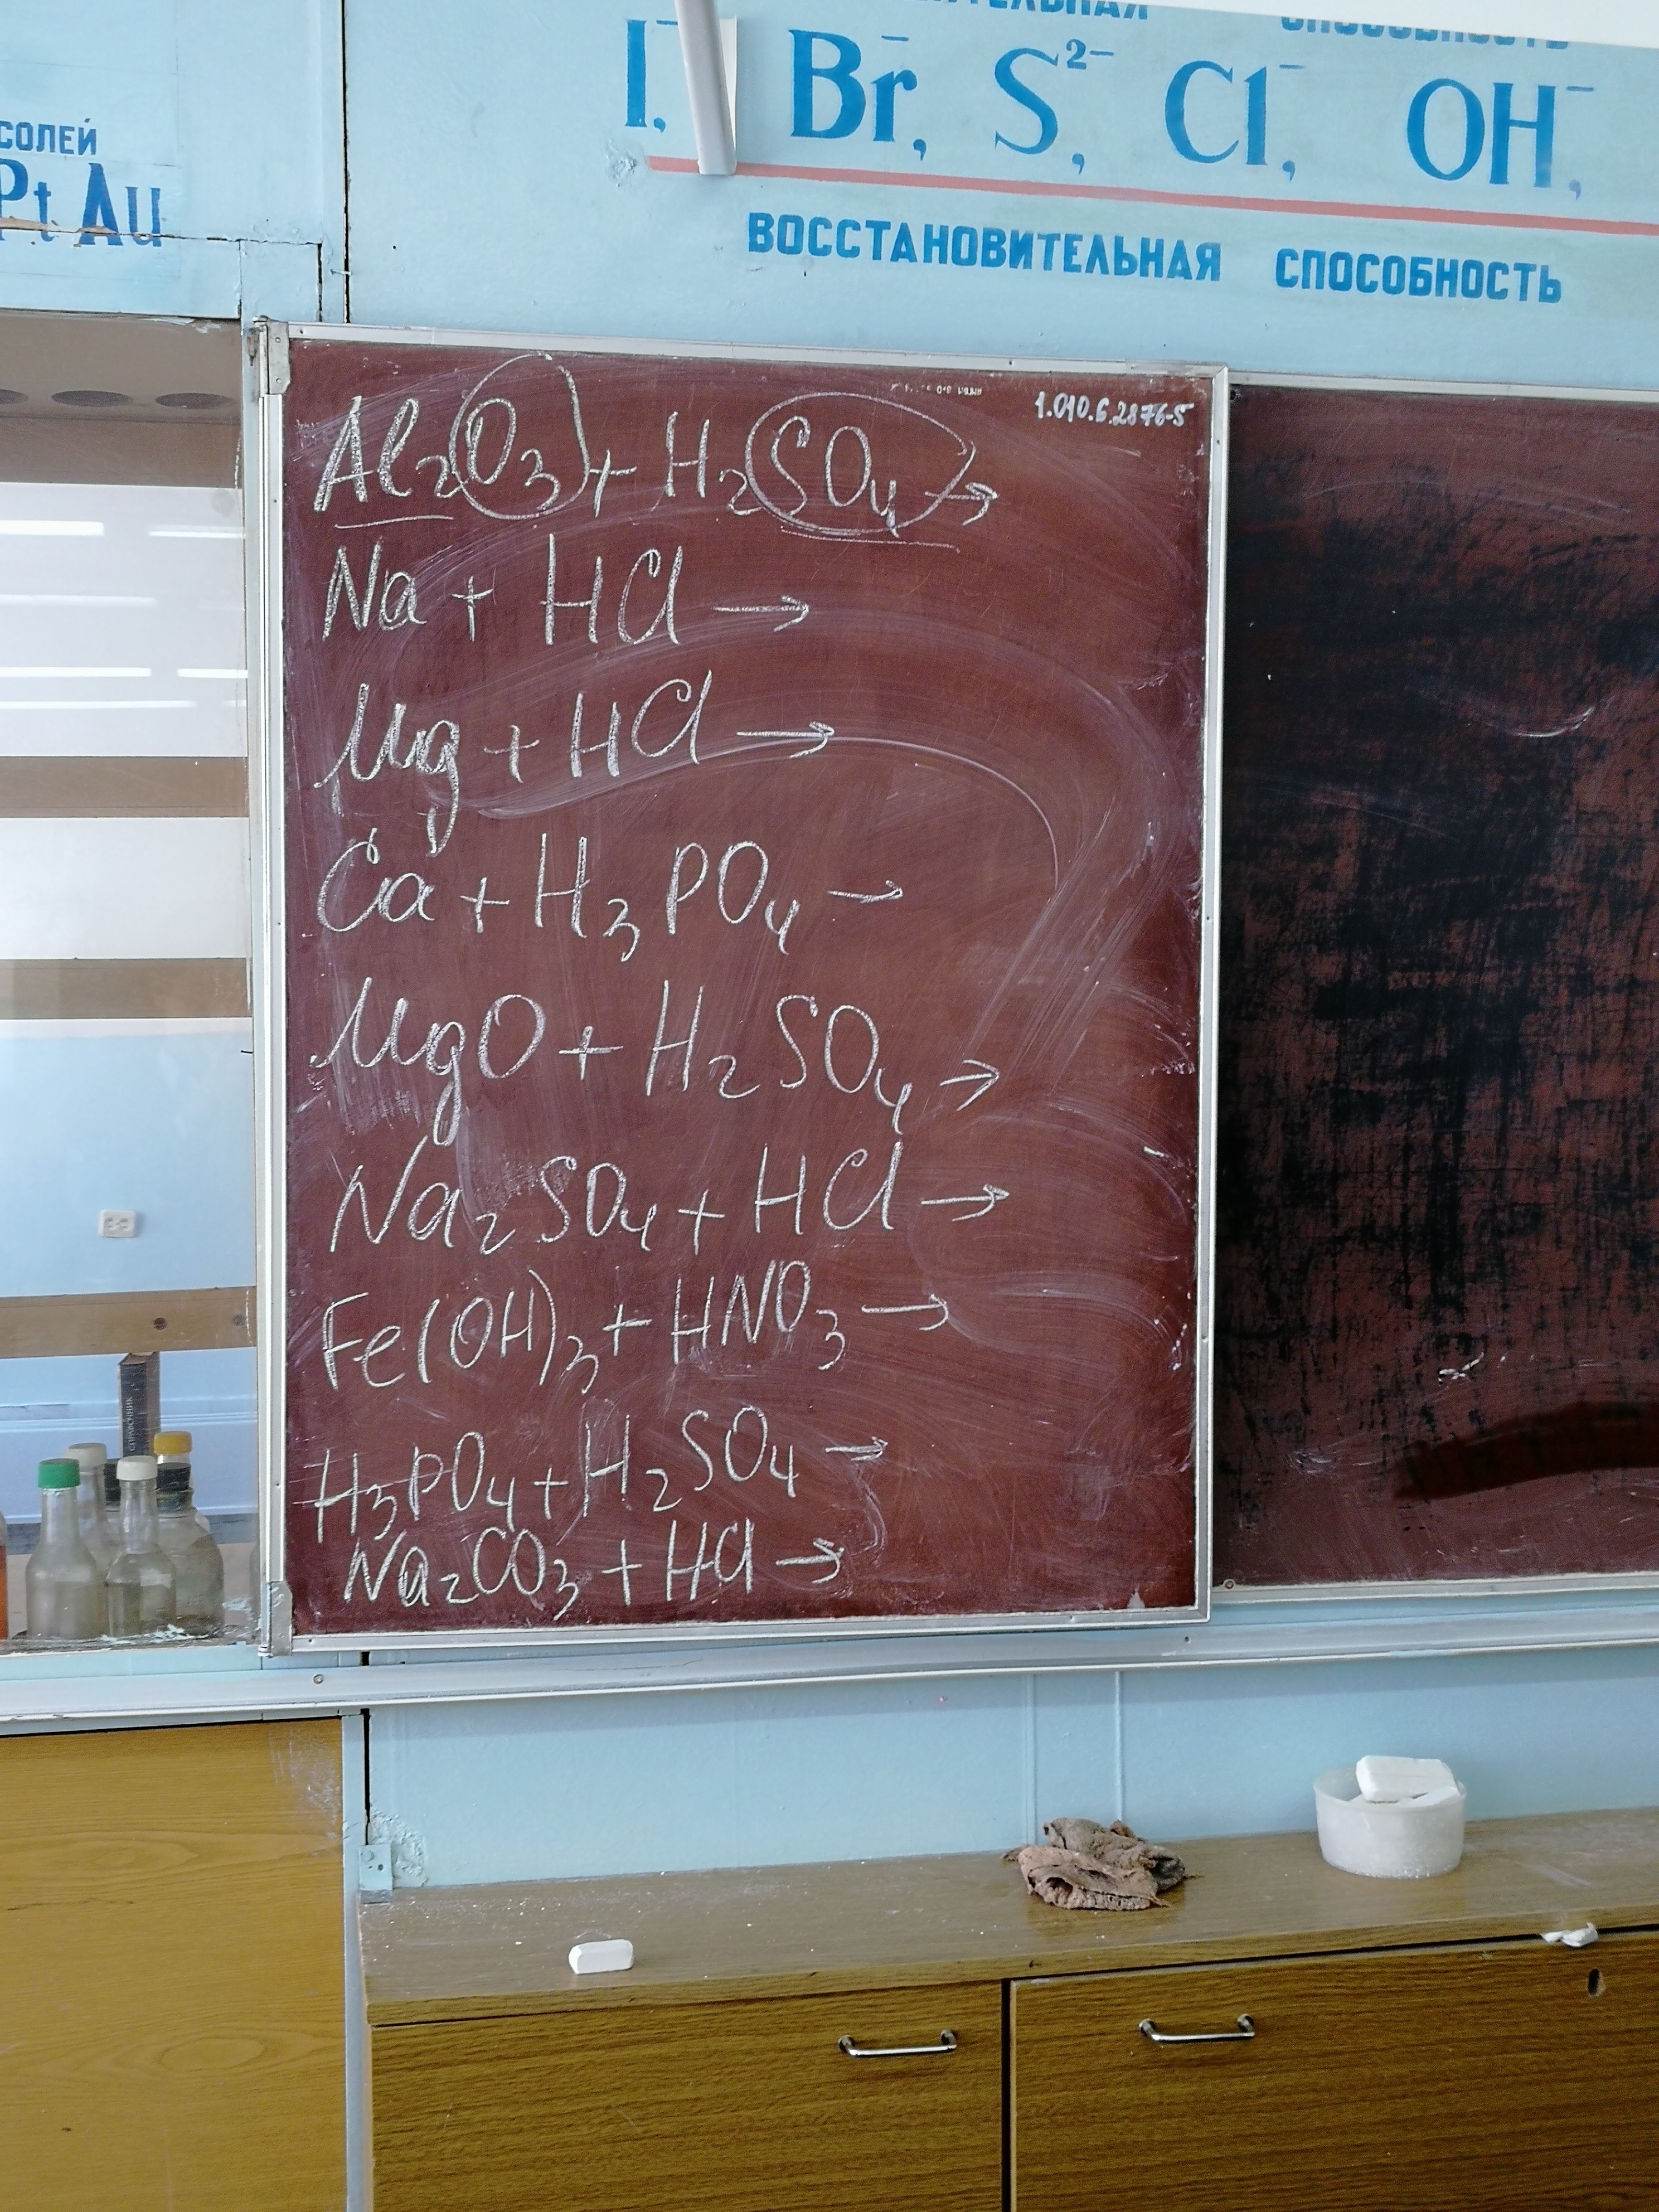 СПОСОБНОСТЬ
I⁻, Br⁻, S²⁻, Cl⁻, OH⁻,
ВОССТАНОВИТЕЛЬНАЯ СПОСОБНОСТЬ
СОЛЕЙ
Pt Au
1.010.6.2876-5
Al₂O₃ + H₂SO₄ →
Na + HCl →
Mg + HCl →
Ca + H₃PO₄ →
MgO + H₂SO₄ →
Na₂SO₄ + HCl →
Fe(OH)₃ + HNO₃ →
H₃PO₄ + H₂SO₄ →
Na₂CO₃ + HCl →
СПРАВОЧНИК